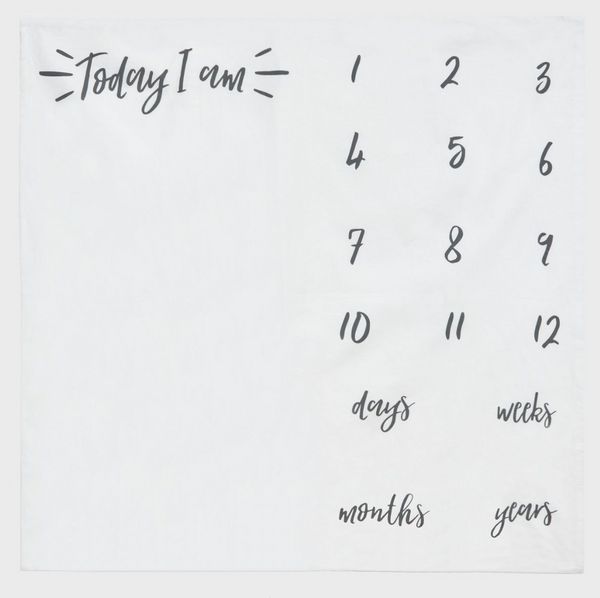 Today I am
1 2 3
4 5 6
7 8 9
10 11 12
days weeks
months years